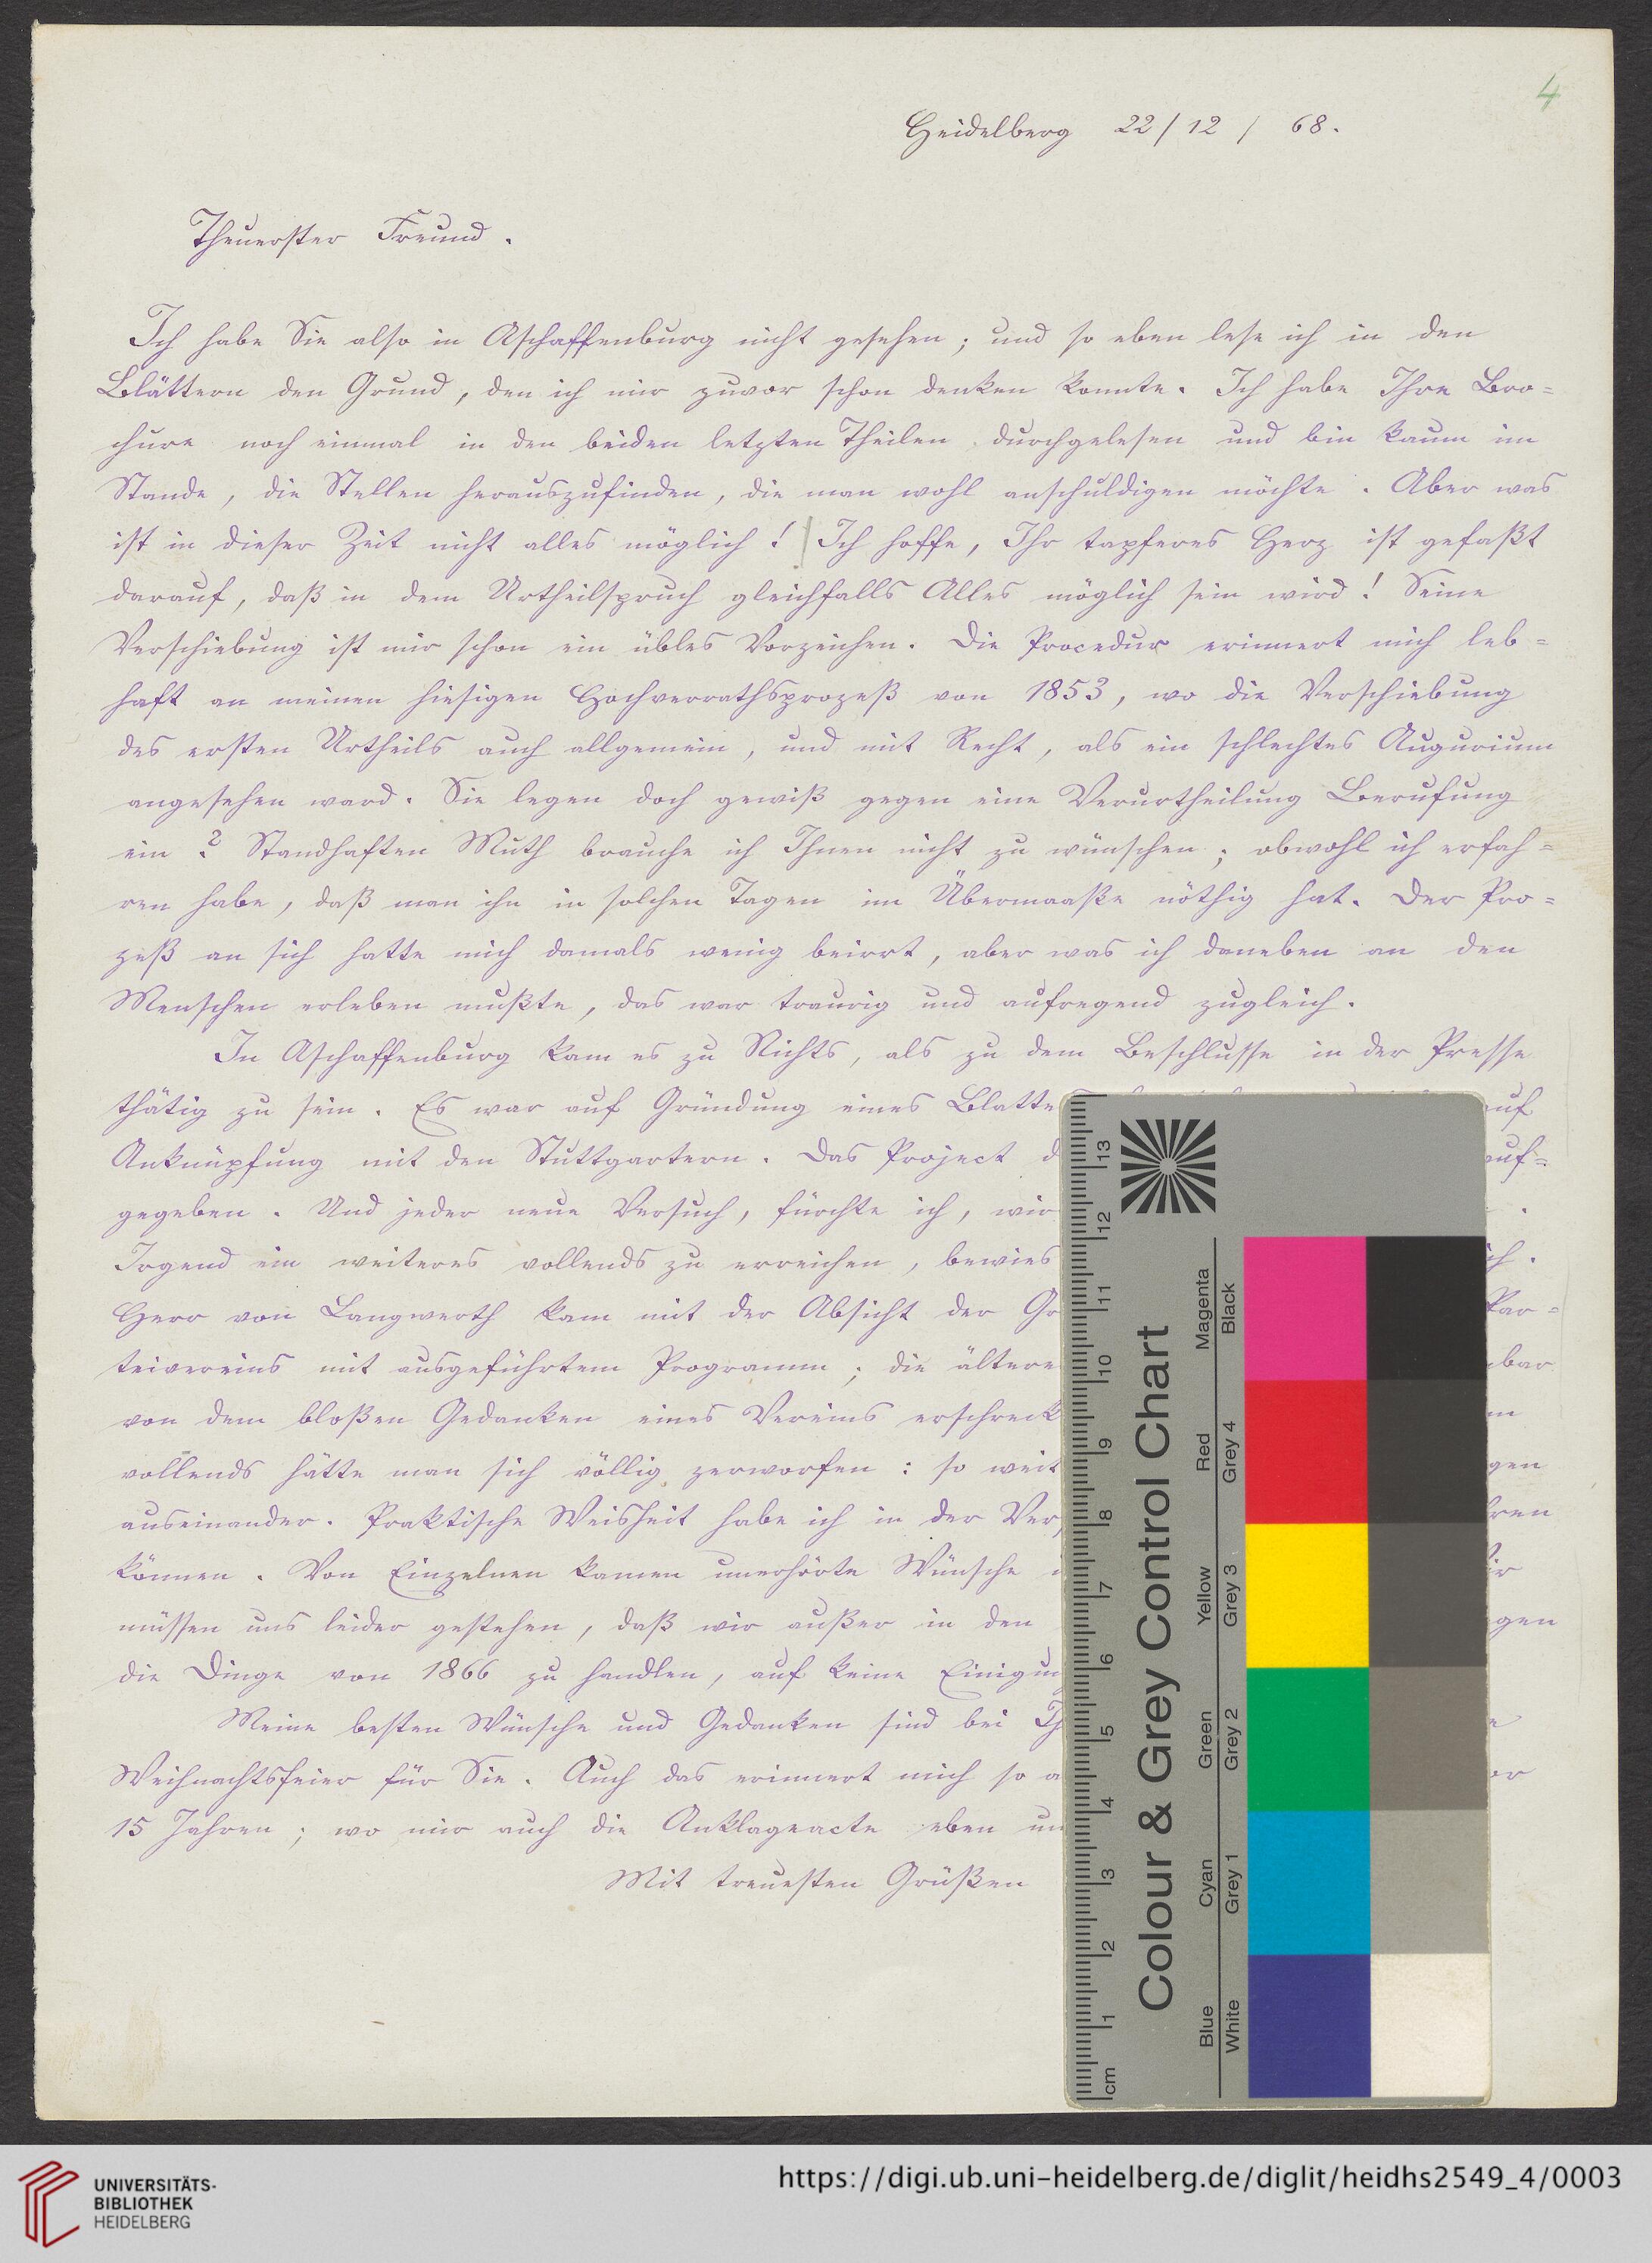 4
Heidelberg 22/12/ 68.
Theuerster Freund.
Ich habe Sie also in Aschaffenburg nicht gesehen; und so eben lese ich in den
Blättern den Grund, den ich mir zuvor schon denken konnte. Ich habe Ihre Bro=
chure noch einmal in den beiden letzten Theilen durchgelesen und bin kaum im
Stande, die Stellen herauszufinden, die man wohl anschuldigen möchte. Aber was
ist in dieser Zeit nicht alles möglich! Ich hoffe, Ihr tapferes Herz ist gefaßt
darauf, daß in dem Urtheilspruch gleichfalls Alles möglich sein wird! Seine
Verschiebung ist mir schon ein übles Vorzeichen. Die Procedur erinnert mich leb=
haft an meinen hiesigen Hochverrathsprozeß von 1853, wo die Verschiebung
des ersten Urtheils auch allgemein, und mit Recht, als ein schlechtes Augurium
angesehen ward. Sie legen doch gewiß gegen eine Verurtheilung Berufung
ein? Standhaften Muth brauche ich Ihnen nicht zu wünschen; obwohl ich erfah=
ren habe, daß man ihn in solchen Tagen im Übermaaße nöthig hat. Der Pro=
zeß an sich hatte mich damals wenig beirrt, aber was ich daneben an den
Menschen erleben mußte, das war traurig und aufregend zugleich.
In Aschaffenburg kam es zu Nichts, als zu dem Beschlusse in der Presse
thätig zu sein. Es war auf Gründung eines Blatte uf
Anknüpfung mit den Stuttgartern. Das Project d auf=
gegeben. Und jeder neue Versuch, fürchte ich, wir .
Irgend ein weiteres vollends zu erreichen, bewies ich.
Herr von Langwerth kam mit der Absicht der Gr Par=
teivereins mit ausgeführtem Programm; die ältere bar
von dem bloßen Gedanken eines Vereins erschreck m
vollends hätte man sich völlig zerworfen: so weit gen
auseinander. Praktische Weisheit habe ich in der Ver ren
können. Von Einzelnen kamen unerhörte Wünsche ir
müssen uns leider gestehen, daß wir außer in den gen
die Dinge von 1866 zu handlen, auf keine Einigun
Meine besten Wünsche und Gedanken sind bei Ih e
Weihnachtsfeier für Sie. Auch das erinnert mich so a er
15 Jahren; wo mir auch die Anklageacte eben um
Mit treuesten Grüßen
Colour & Grey Control Chart
Blue Cyan Green Yellow Red Magenta
White Grey 1 Grey 2 Grey 3 Grey 4 Black
cm 1 2 3 4 5 6 7 8 9 10 11 12 13
UNIVERSITÄTS-
BIBLIOTHEK
HEIDELBERG
https://digi.ub.uni-heidelberg.de/diglit/heidhs2549_4/0003